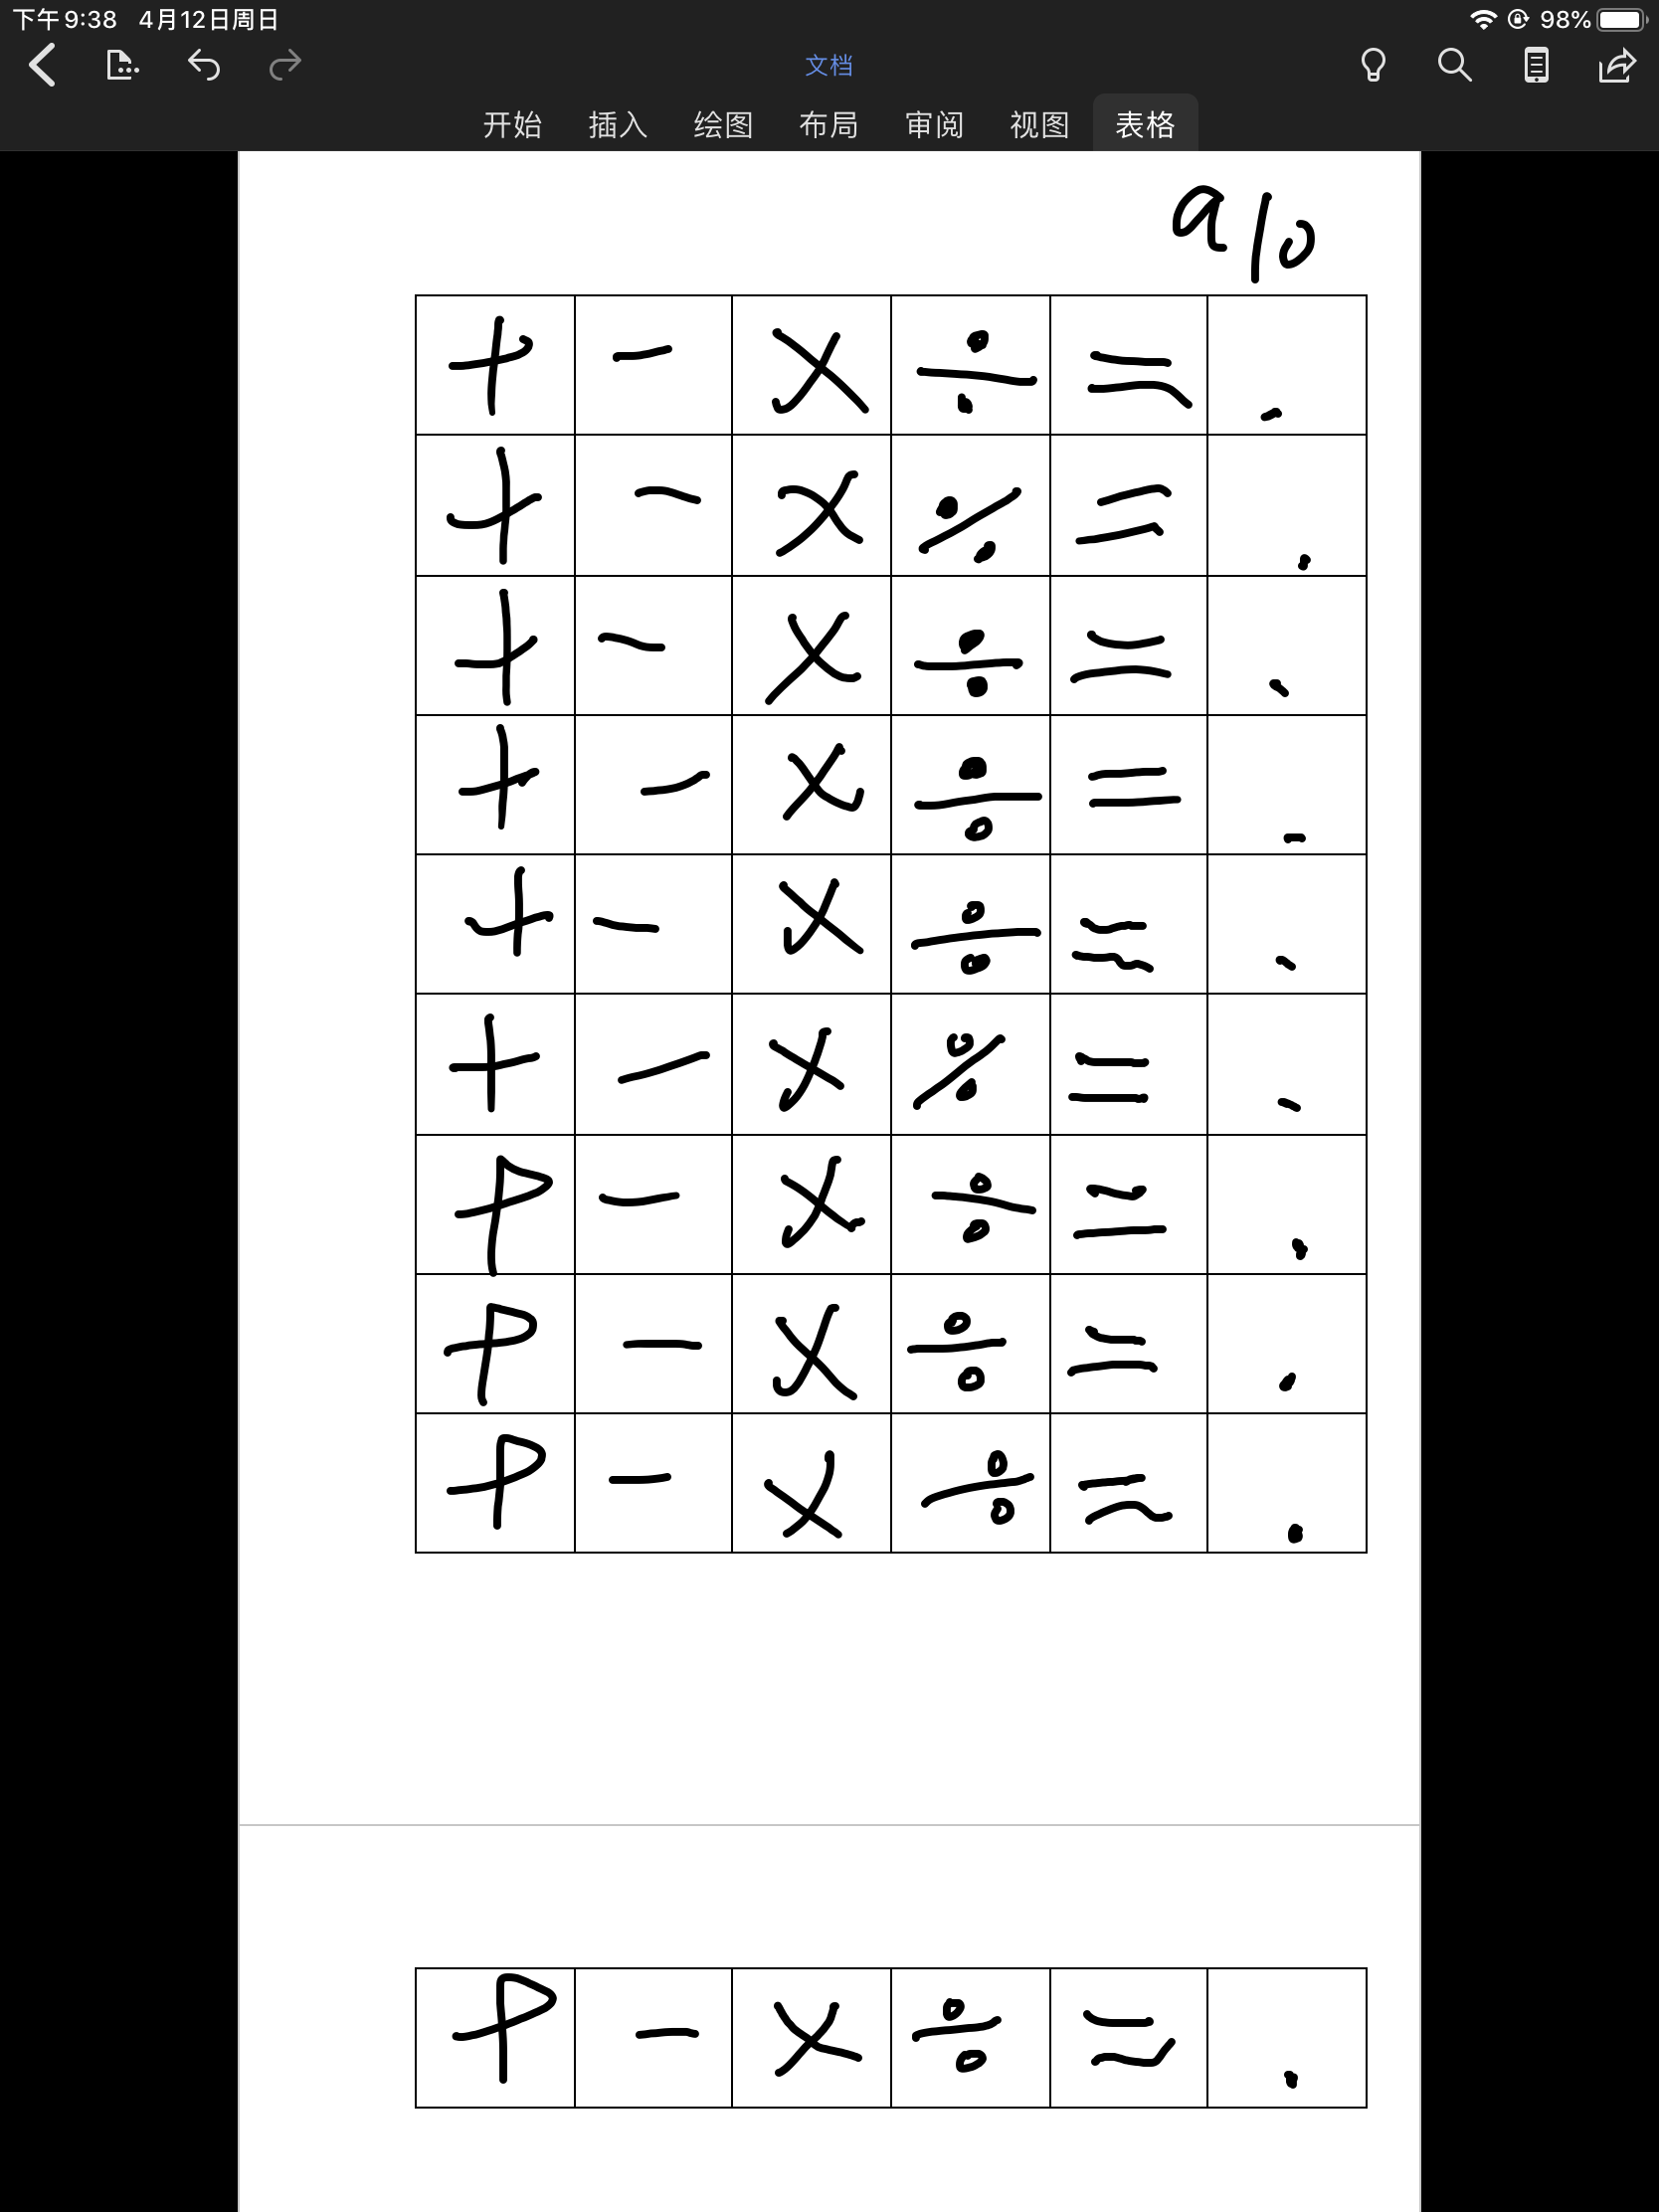 下午9:38 4月12日周日 98%
文档
开始 插入 绘图 布局 审阅 视图 表格
a10
+ - × ÷ = .
+ - × ÷ = .
+ - × ÷ = .
+ - × ÷ = .
+ - × ÷ = .
+ - × ÷ = .
+ - × ÷ = .
+ - × ÷ = .
+ - × ÷ = .
+ - × ÷ = .